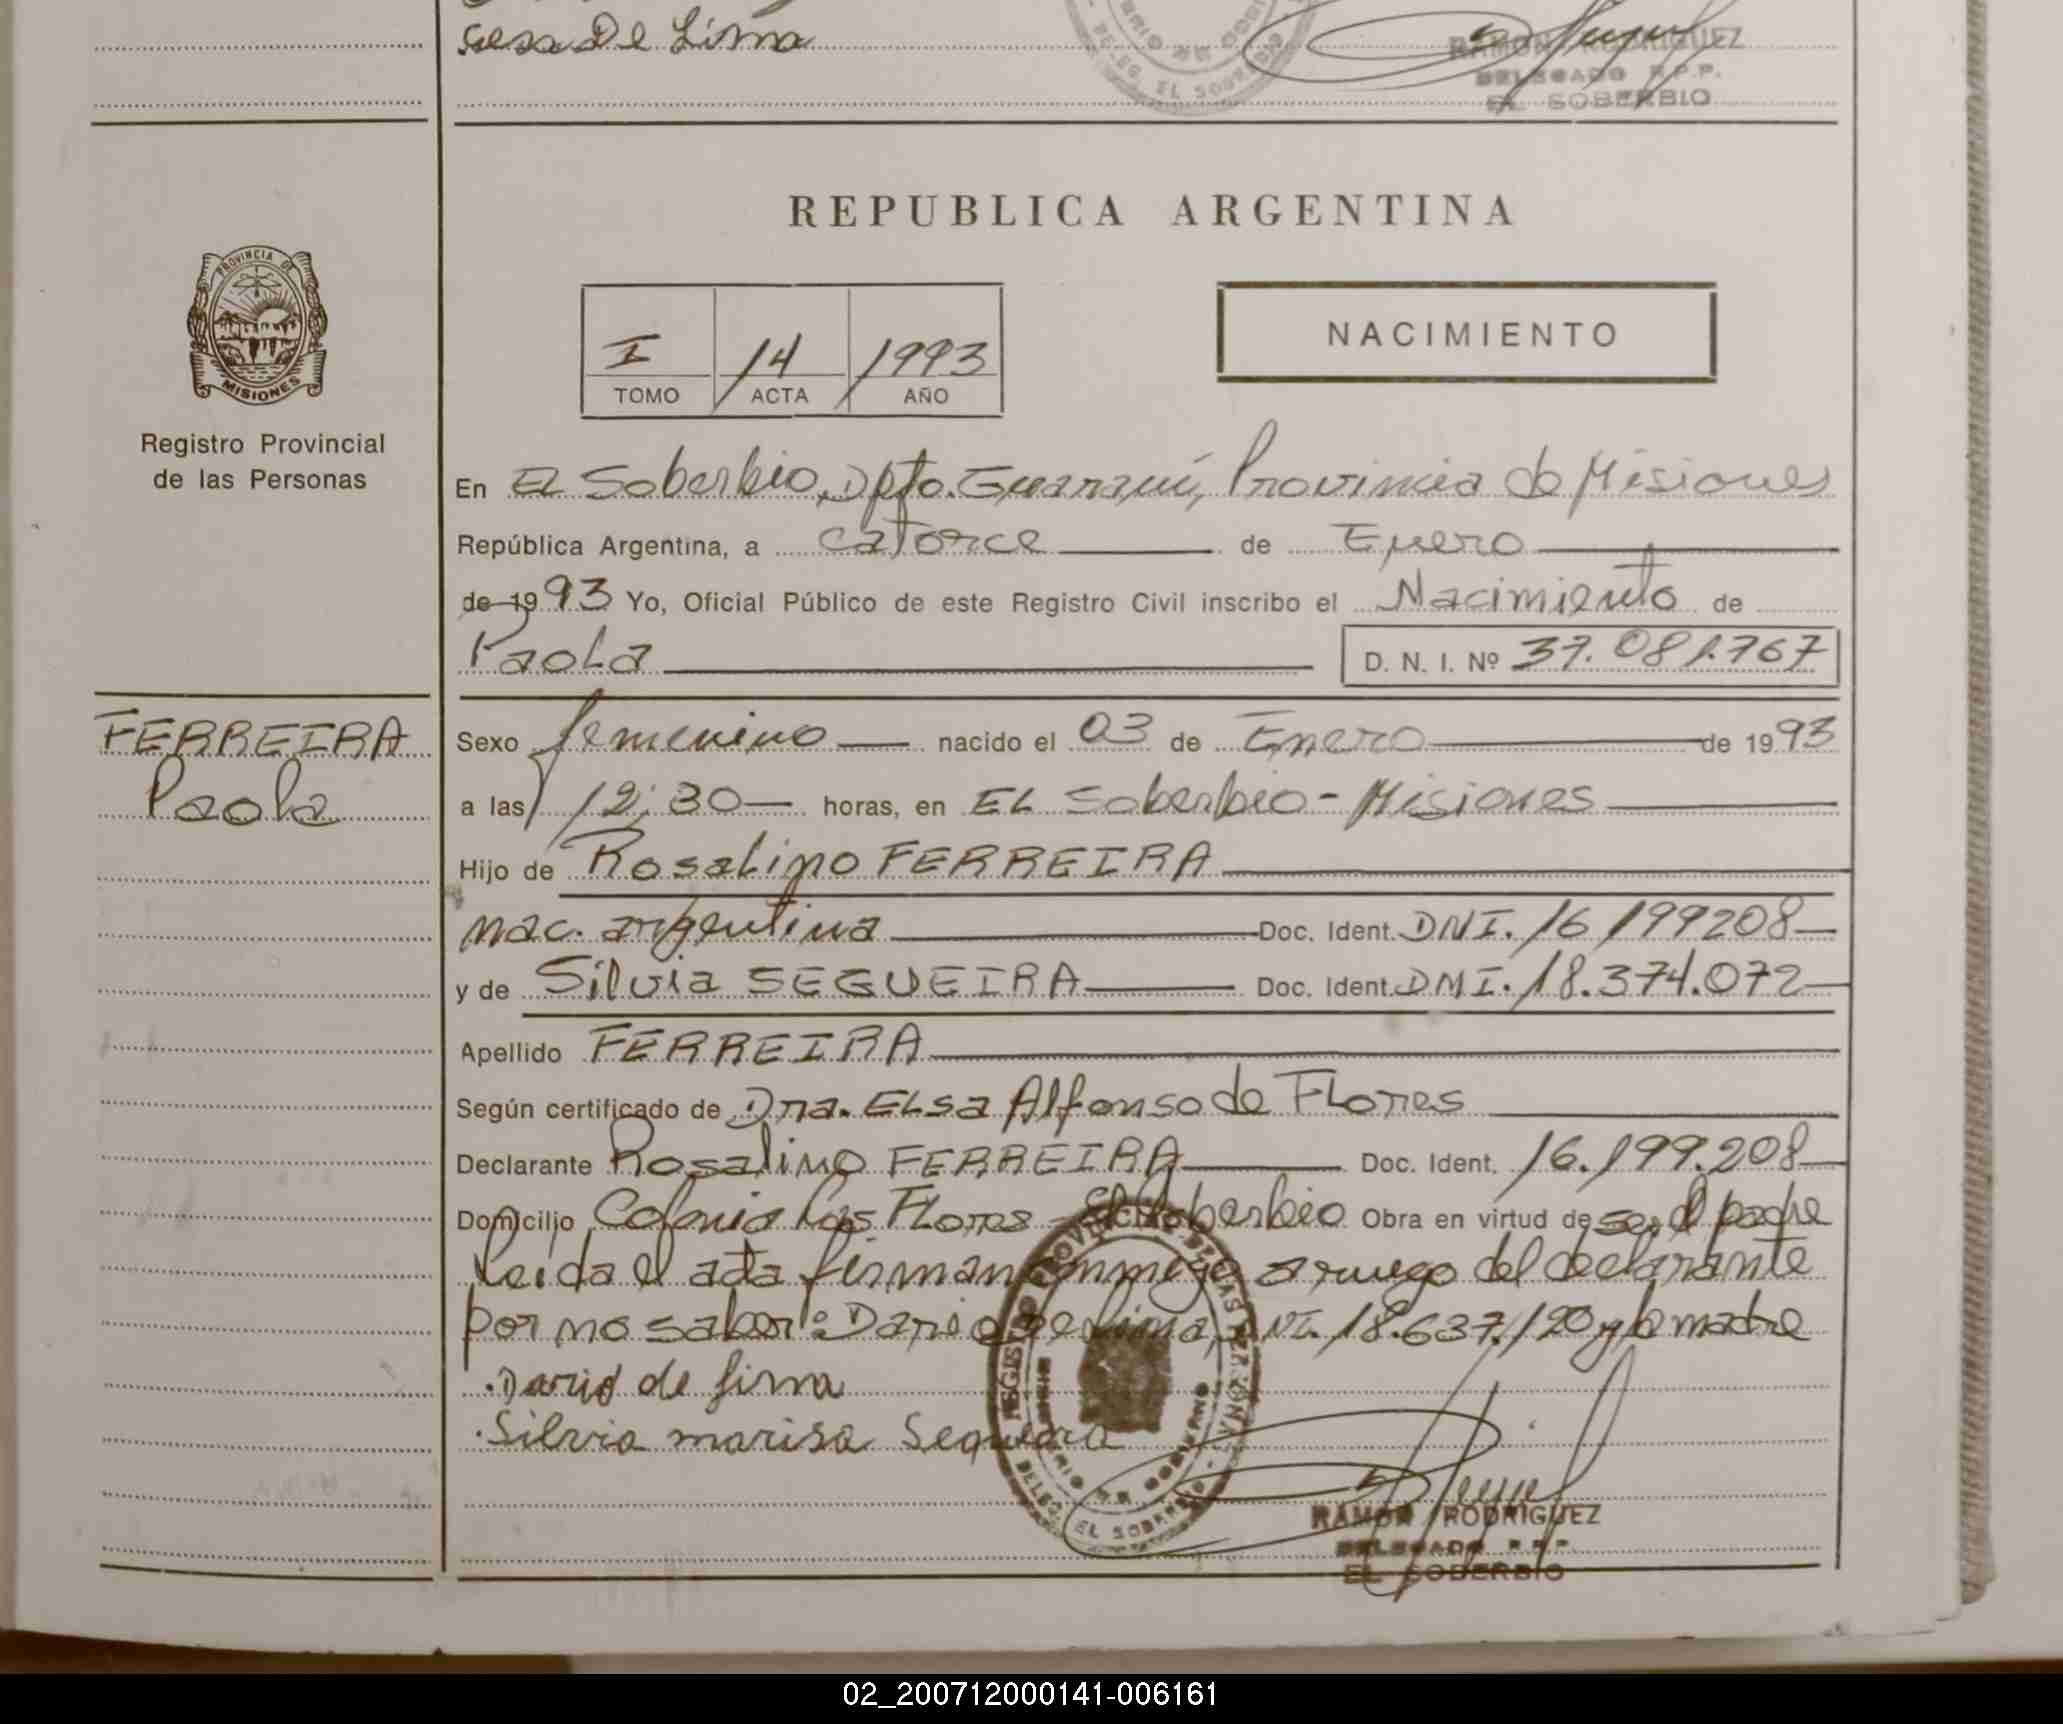 sesa De Lima
RAMON RODRIGUEZ
DELEGADO R.P.P.
DELEG. EL SOBERBIO
EL SOBERBIO
REPUBLICA ARGENTINA
PROVINCIA DE
MISIONES
NACIMIENTO
I 14 1993
TOMO ACTA AÑO
Registro Provincial
de las Personas
En EL Soberbio, Dpto. Guaraní, Provincia de Misiones
República Argentina, a catorce de Enero
de 1993 Yo, Oficial Público de este Registro Civil inscribo el Nacimiento de
Paola D. N. I. Nº 37.081.767
FERREIRA
Paola
Sexo femenino nacido el 03 de Enero de 1993
a las 12:30 horas, en EL Soberbio - Misiones
Hijo de Rosalino FERREIRA
nac. argentina Doc. Ident. DNI. 16 199208
y de Silvia SEGUEIRA Doc. Ident. DNI. 18.374.072
Apellido FERREIRA
Según certificado de Dra. ELsa Alfonso de FLores
Declarante Rosalino FERREIRA Doc. Ident. 16.199.208
Domicilio Colonia Las FLores - El Soberbio Obra en virtud de ser el padre
Leida el acta firman conmigo a ruego del declarante
por no saber: Dario de Lima, DNI. 18.637.120 y la madre
Dario de lima
Silvia marisa Sequeira
DELEG. EL SOBERBIO
RAMON RODRIGUEZ
DELEGADO R.P.P.
EL SOBERBIO
02_200712000141-006161